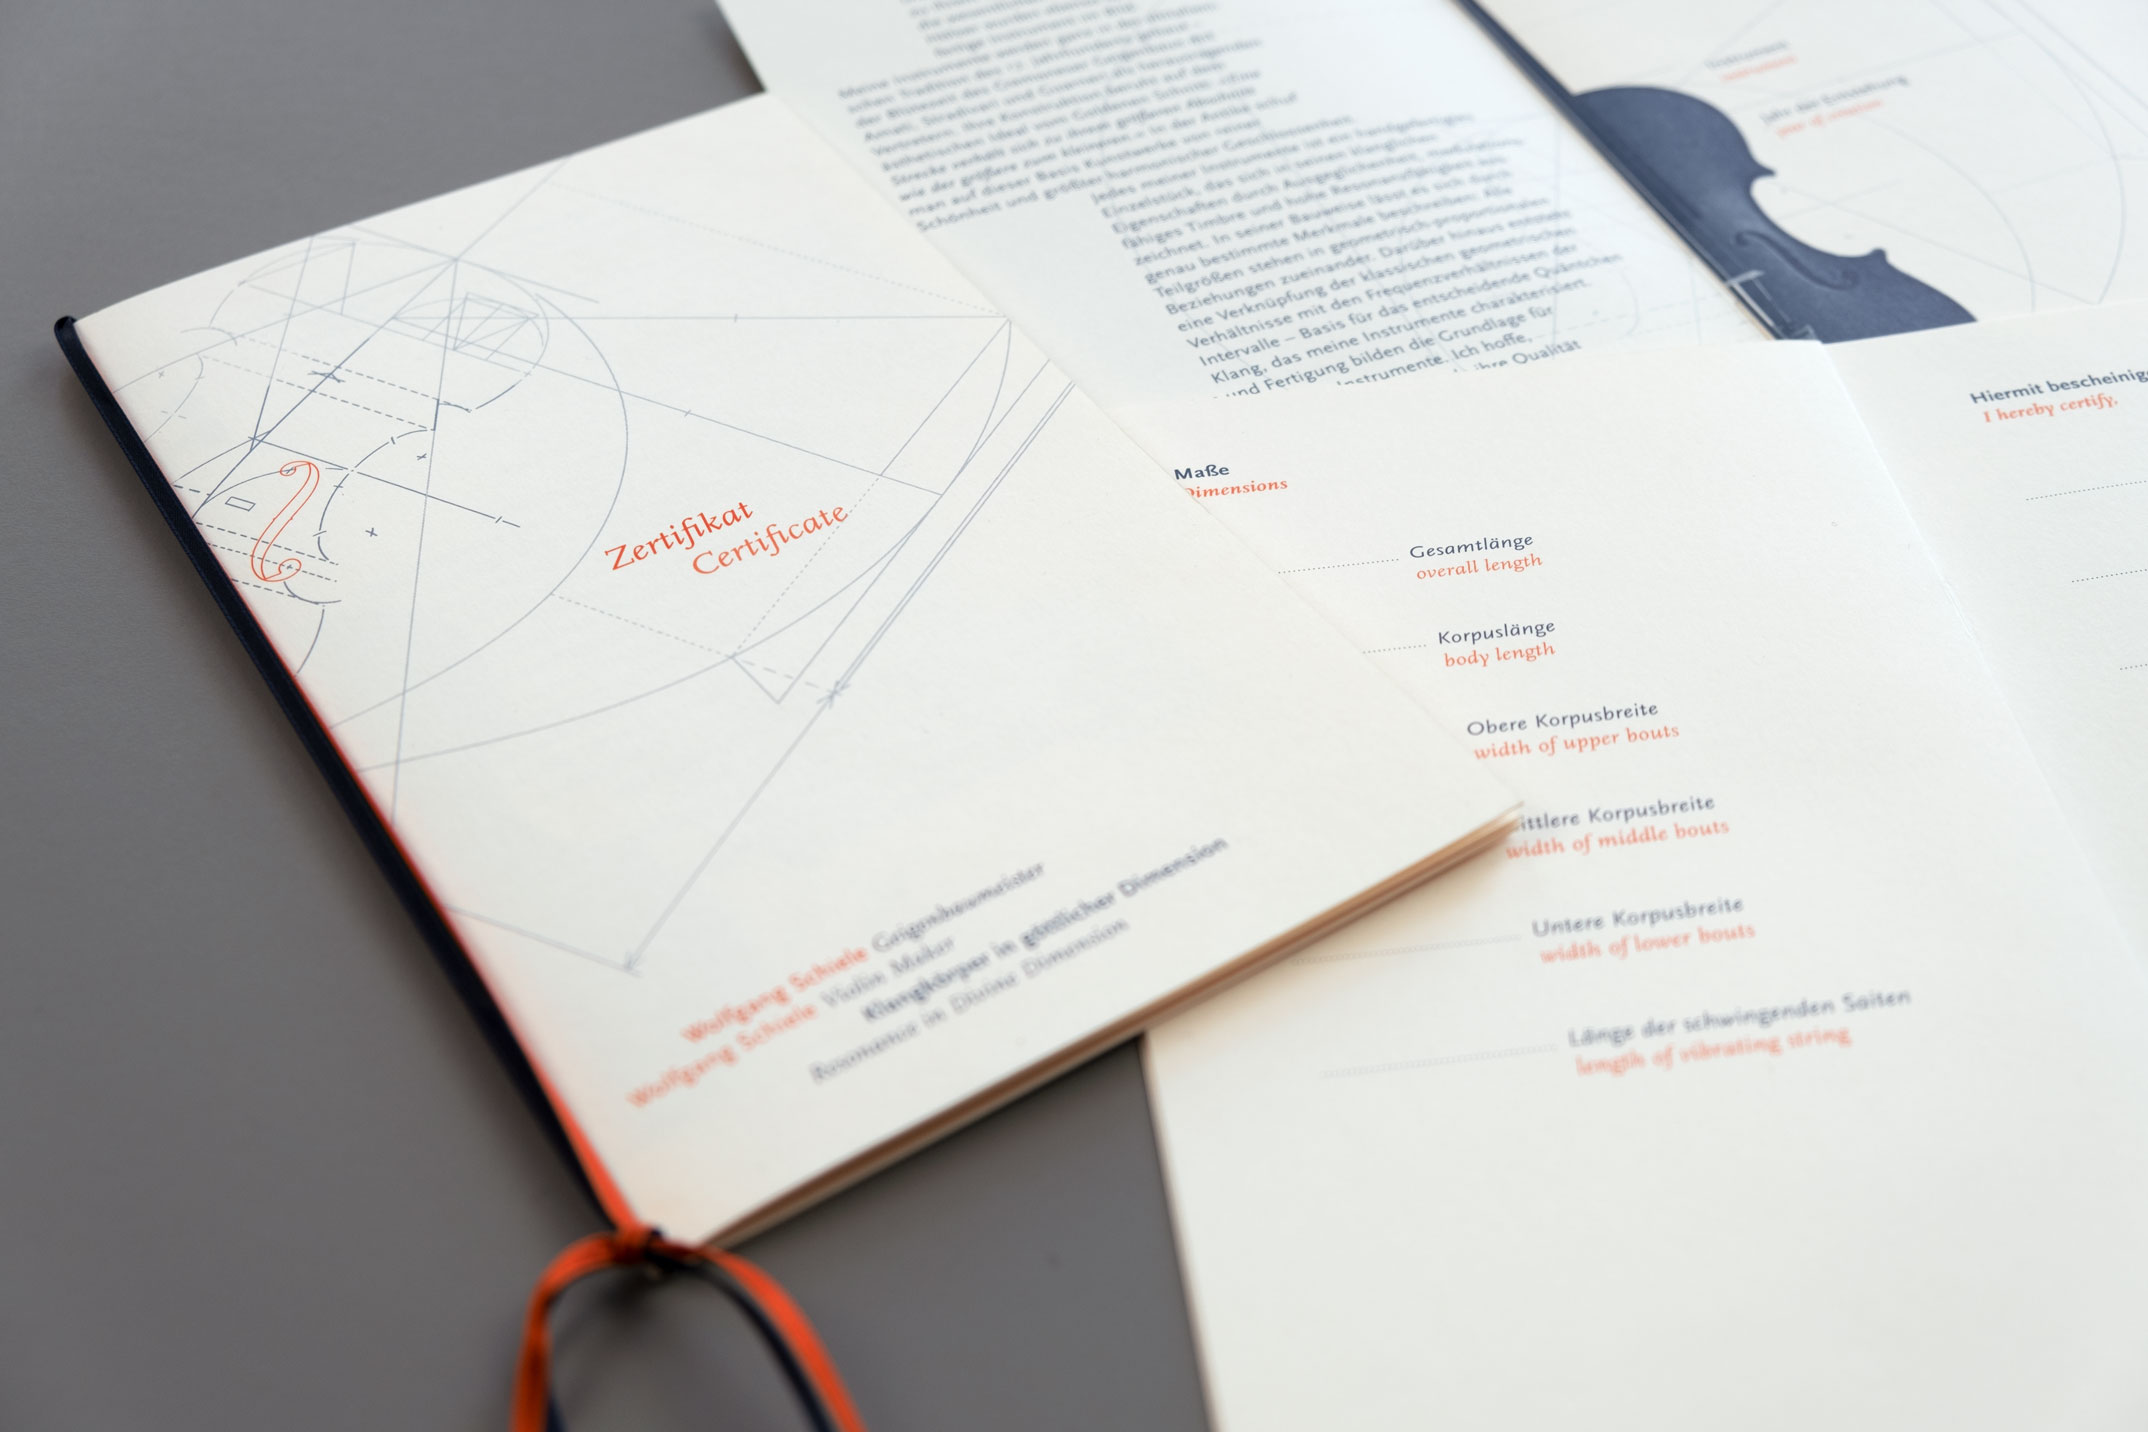 Zertifikat
Certificate
Wolfgang Schiele Geigenbaumeister
Wolfgang Schiele Violin Maker
Klangkörper in göttlicher Dimension
Resonance in Divine Dimension
Meine Instrumente werden ganz in der
schen Tradition des 17. Jahrhunderts gebaut –
der Blütezeit des Cremoneser Geigenbaus mit
Amati, Stradivari und Guarneri als herausragenden
Vertretern. Ihre Konstruktion beruht auf dem
ästhetischen Ideal vom Goldenen Schnitt. »Eine
Strecke verhält sich zu ihrem größeren Abschnitt
wie der größere zum kleineren« – in der Antike schuf
man auf dieser Basis Kunstwerke von reiner
Schönheit und größter harmonischer Geschlossenheit.
Jedes meiner Instrumente ist ein handgefertigtes
Einzelstück, das sich in seinen klanglichen
Eigenschaften durch Ausgeglichenheit,
fähiges Timbre und hohe Resonanzfähigkeit
zeichnet. In seiner Bauweise lässt es sich durch
genau bestimmte Merkmale beschreiben. Alle
Teilgrößen stehen in geometrisch-proportionalen
Beziehungen zueinander. Darüber hinaus entsteht
eine Verknüpfung der klassischen geometrischen
Verhältnisse mit den Frequenzverhältnissen der
Intervalle – Basis für das entscheidende Quäntchen
Klang, das meine Instrumente charakterisiert.
und Fertigung bilden die Grundlage für
Instrumente. Ich hoffe,
ihre Qualität
Instrument
instrument
Jahr der Entstehung
year of creation
Maße
Dimensions
Gesamtlänge
overall length
Korpuslänge
body length
Obere Korpusbreite
width of upper bouts
ittlere Korpusbreite
width of middle bouts
Untere Korpusbreite
width of lower bouts
Länge der schwingenden Saiten
length of vibrating string
Hiermit bescheinige
I hereby certify,